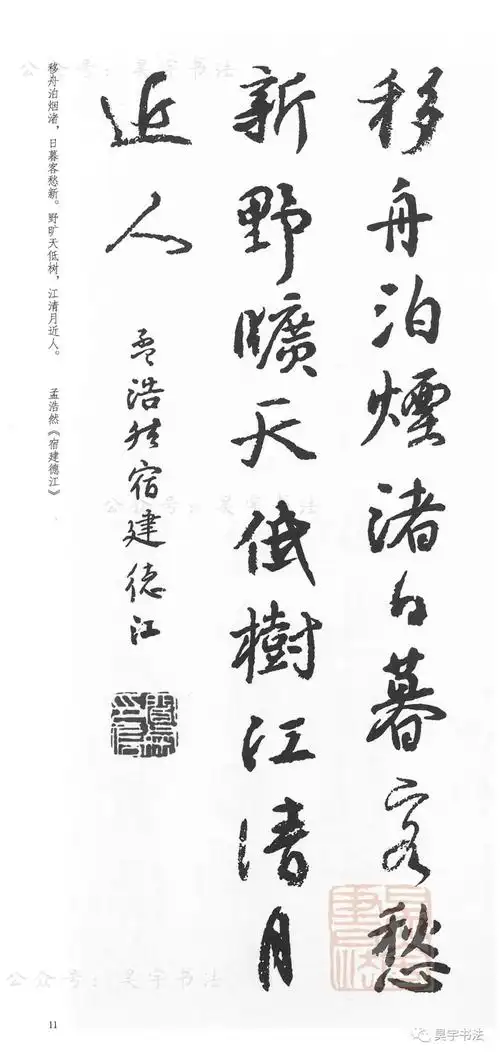 移舟泊煙渚日暮客愁
新野曠天低樹江清月
近人
孟浩然宿建德江
移舟泊烟渚，日暮客愁新。野旷天低树，江清月近人。 孟浩然《宿建德江》
公众号：昊宇书法
公众号：昊宇书法
公众号：昊宇书法
11
昊宇书法